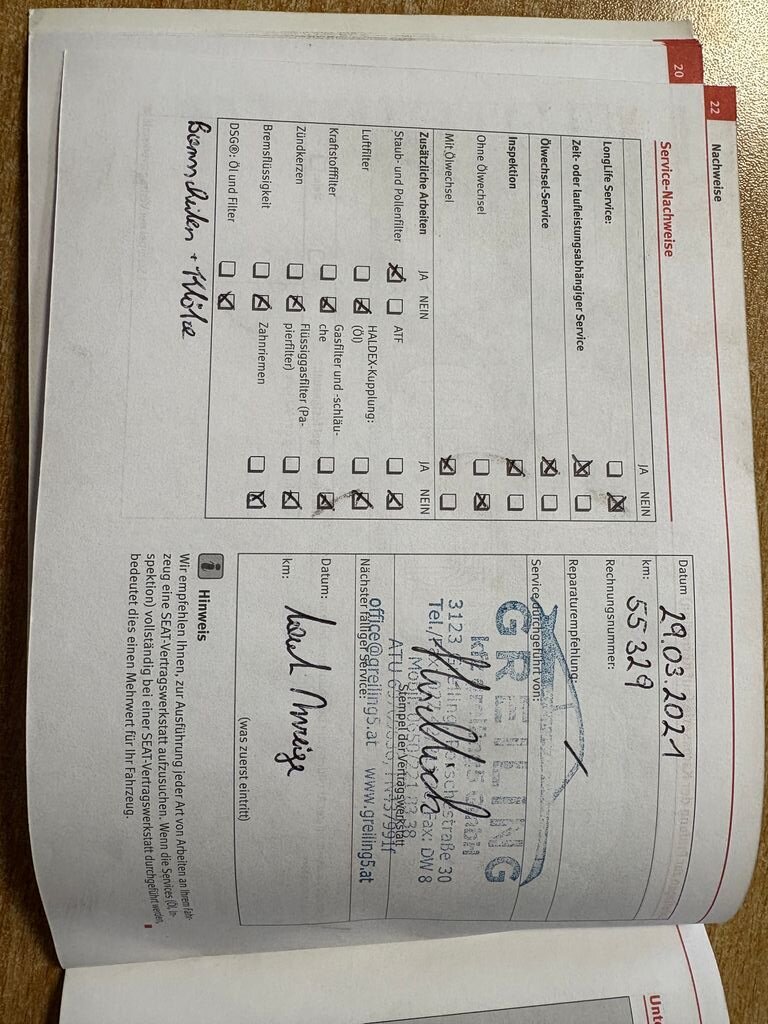 20
22
Nachweise
Service-Nachweise
JA NEIN
LongLife Service:
Zeit- oder laufleistungsabhängiger Service
Ölwechsel-Service
Inspektion
Ohne Ölwechsel
Mit Ölwechsel
Zusätzliche Arbeiten JA NEIN JA NEIN
Staub- und Pollenfilter ATF
Luftfilter HALDEX-Kupplung:
(Öl)
Kraftstofffilter Gasfilter und -schläu-
che
Zündkerzen Flüssiggasfilter (Pa-
pierfilter)
Bremsflüssigkeit Zahnriemen
DSG®: Öl und Filter
Bremsscheiben + Klötze
Datum 29.03.2021
km: 55 329
Rechnungsnummer:
Reparaturempfehlung:
Service durchgeführt von:
GREILING
3123
straße 30
Tel./
Fax: DW 8
Stempel der Vertragswerkstatt
office@greiling5.at www.greiling5.at
Nächster fälliger Service:
Datum: laut Anzeige
km:
(was zuerst eintritt)
i Hinweis
Wir empfehlen Ihnen, zur Ausführung jeder Art von Arbeiten an Ihrem Fahr-
zeug eine SEAT-Vertragswerkstatt aufzusuchen. Wenn die Services (Öl, In-
spektion) vollständig bei einer SEAT-Vertragswerkstatt durchgeführt werden,
bedeutet dies einen Mehrwert für Ihr Fahrzeug.